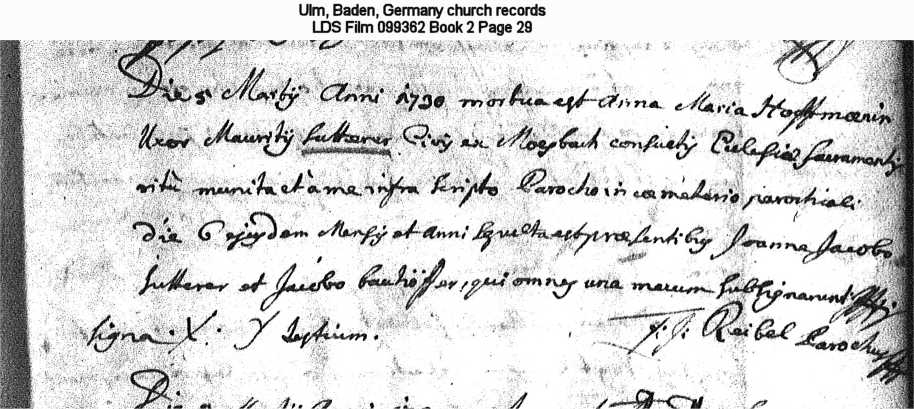 Ulm, Baden, Germany church records
LDS Film 099362 Book 2 Page 29
Die 5 Martij Anni 1730 mortua est Anna Maria Hoffmænin
Uxor Mauritij Sutterer Civis ex Moesbach consuetis Ecclesiæ Sacramentis
ritù munita et à me infra scripto Parocho in cœmeterio parochiali
die 6 ejusdem Mensis et Anni sepulta est præsentibus Joanne Jacobo
Sutterer et Jacobo qui omnes una mecum subsignarunt
signa. X. Y testium. Reibel Parochus